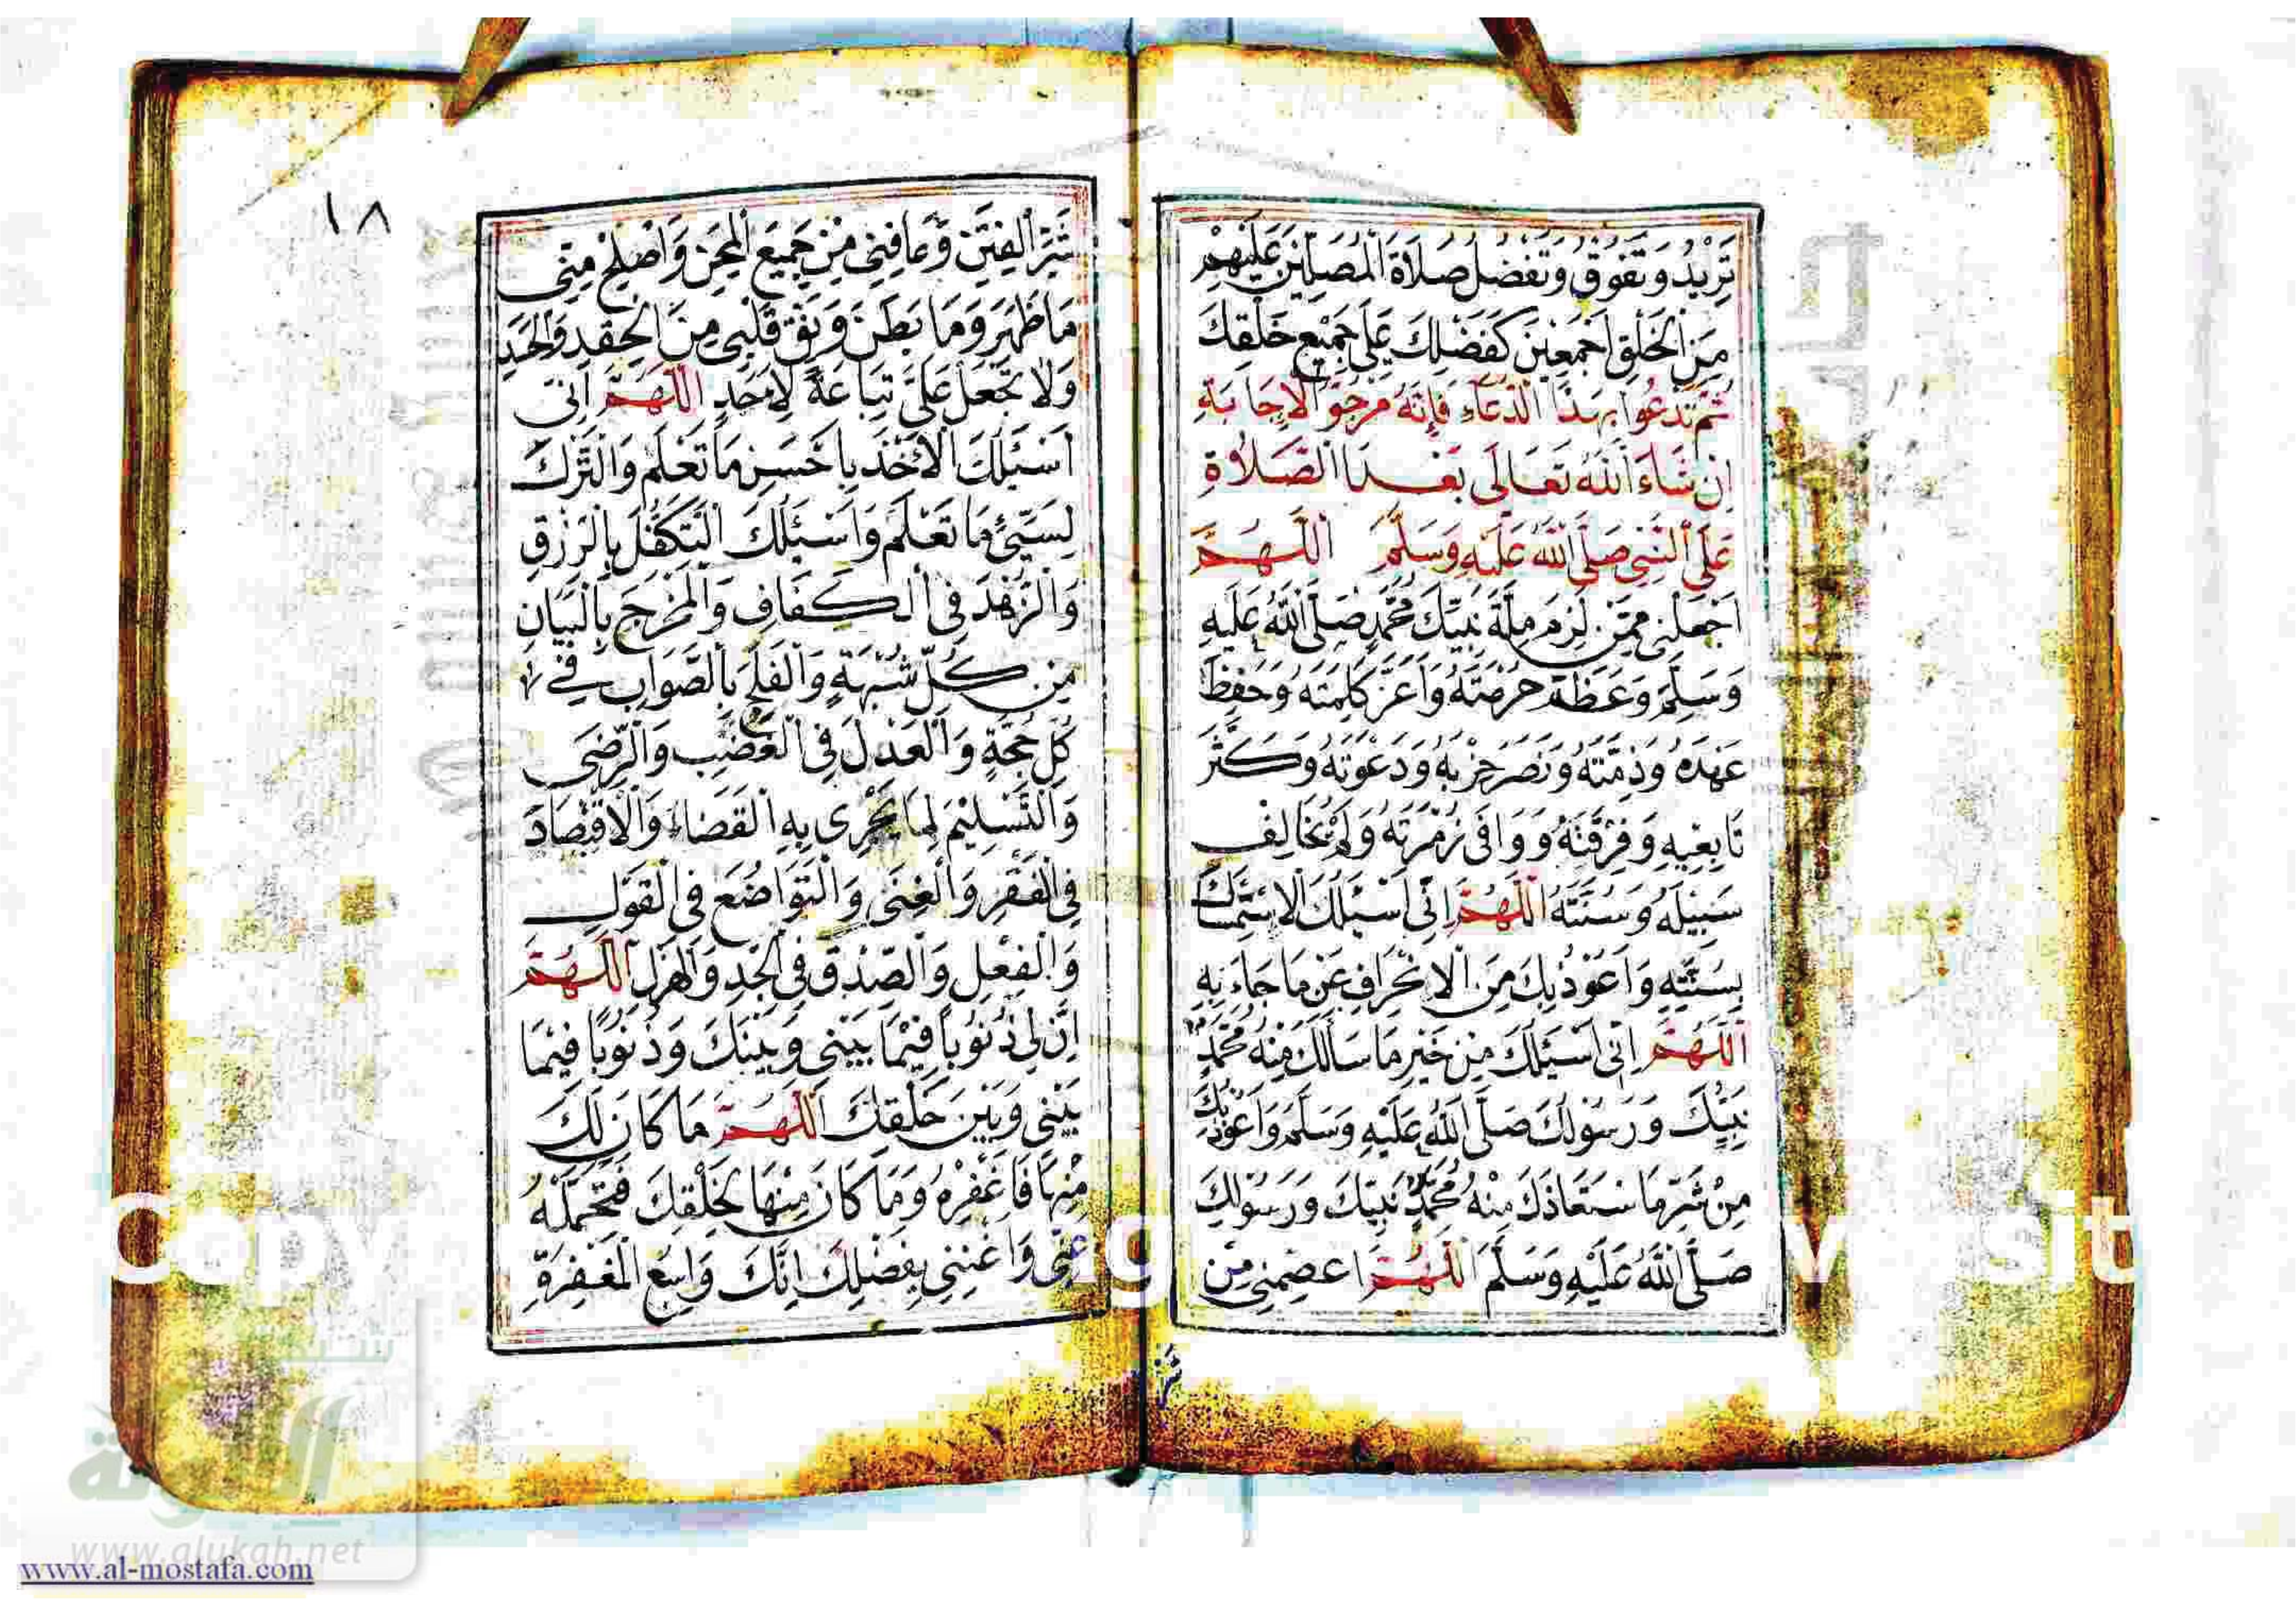 تَزِيْدُ وَتَفُوْقُ وَتَفْضُلُ صَلَاةَ الْمُصَلِّيْنَ عَلَيْهِمْ
مِنَ الْخَلْقِ اَجْمَعِيْنَ كَفَضْلِكَ عَلَى جَمِيْعِ خَلْقِكَ
ثُمَّ تَدْعُوا بِهَذَا الدُّعَاءِ فَاِنَّهُ مَرْجُوُّ الْاِجَابَةِ
اِنْ شَاءَ اللهُ تَعَالَى بَعْدَ الصَّلَاةِ
عَلَى النَّبِي صَلَّى اللهُ عَلَيْهِ وَسَلَّمَ اَللَّهُمَّ
اجْعَلْنِي مِمَّنْ لَزِمَ مِلَّةَ نَبِيِّكَ مُحَمَّدٍ صَلَّى اللهُ عَلَيْهِ
وَسَلَّمَ وَعَظَّمَ حُرْمَتَهُ وَاَعَزَّ كَلِمَتَهُ وَحَفِظَ
عَهْدَهُ وَذِمَّتَهُ وَنَصَرَ حِزْبَهُ وَدَعْوَتَهُ وَكَثَّرَ
تَابِعِيْهِ وَفِرْقَتَهُ وَوَافَى زُمْرَتَهُ وَلَمْ يُخَالِفْ
سَبِيْلَهُ وَسُنَّتَهُ اَللَّهُمَّ اِنِّى اَسْئَلُكَ الْاِسْتِمْسَاكَ
بِسُنَّتِهِ وَاَعُوْذُ بِكَ مِنَ الْاِنْحِرَافِ عَنْ مَا جَاءَ بِهِ
اَللَّهُمَّ اِنِّى اَسْئَلُكَ مِنْ خَيْرِ مَا سَاَلَكَ مِنْهُ مُحَمَّدٌ
نَبِيُّكَ وَرَسُوْلُكَ صَلَّى اللهُ عَلَيْهِ وَسَلَّمَ وَاَعُوْذُ بِكَ
مِنْ شَرِّ مَا اسْتَعَاذَكَ مِنْهُ مُحَمَّدٌ نَبِيُّكَ وَرَسُوْلُكَ
صَلَّى اللهُ عَلَيْهِ وَسَلَّمَ اَللَّهُمَّ اعْصِمْنِي مِنْ
شَرِّ
١٨
شَرِّ الْفِتَنِ وَعَافِنِي مِنْ جَمِيْعِ الْمِحَنِ وَاَصْلِحْ مِنِّى
مَا ظَهَرَ وَمَا بَطَنَ وَنَقِّ قَلْبِى مِنَ الْحِقْدِ وَالْحَسَدِ
وَلَا تَجْعَلْ عَلَىَّ تِبَاعَةً لِاَحَدٍ اَللَّهُمَّ اِنِّى
اَسْئَلُكَ الْاَخْذَ بِاَحْسَنِ مَا تَعْلَمُ وَالتَّرْكَ
لِسَيِّئِ مَا تَعْلَمُ وَاَسْئَلُكَ التَّكَفُّلَ بِالرِّزْقِ
وَالزُّهْدَ فِى الْكَفَافِ وَالْمَخْرَجَ بِالْبَيَانِ
مِنْ كُلِّ شُبْهَةٍ وَالْفَلَجَ بِالصَّوَابِ فِي
كُلِّ حُجَّةٍ وَالْعَدْلَ فِى الْغَضَبِ وَالرِّضَى
وَالتَّسْلِيْمَ لِمَا يَجْرِى بِهِ الْقَضَاءُ وَالْاِقْتِصَادَ
فِى الْفَقْرِ وَالْغِنَى وَالتَّوَاضُعَ فِى الْقَوْلِ
وَالْفِعْلِ وَالصِّدْقَ فِى الْجِدِّ وَالْهَزْلِ اَللَّهُمَّ
اِنَّ لِى ذُنُوْبًا فِيْمَا بَيْنِى وَبَيْنَكَ وَذُنُوْبًا فِيْمَا
بَيْنِى وَبَيْنَ خَلْقِكَ اَللَّهُمَّ مَا كَانَ لَكَ
مِنْهَا فَاغْفِرْهُ وَمَا كَانَ مِنْهَا لِخَلْقِكَ فَتَحَمَّلْهُ
عَنِّى وَاَغْنِنِى بِفَضْلِكَ اِنَّكَ وَاسِعُ الْمَغْفِرَةِ
شبكة
الألوكة
www.alukah.net
www.al-mostafa.com